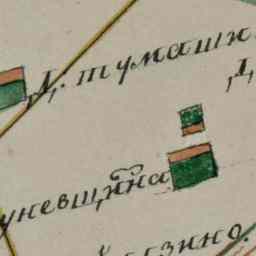 Д. тумашк
Д,
уневщина
езино.